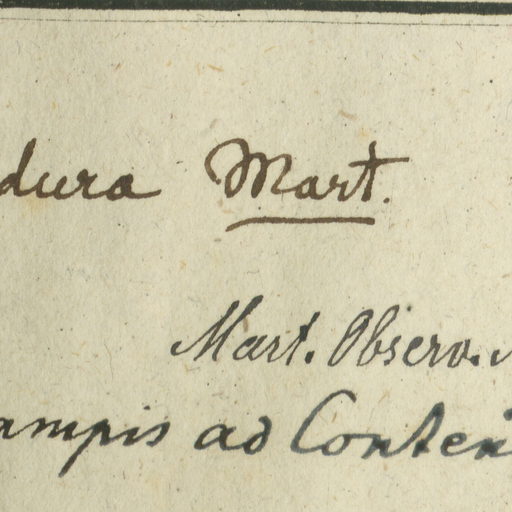 dura Mart.
Mart. Observ.
ampis ad Conten